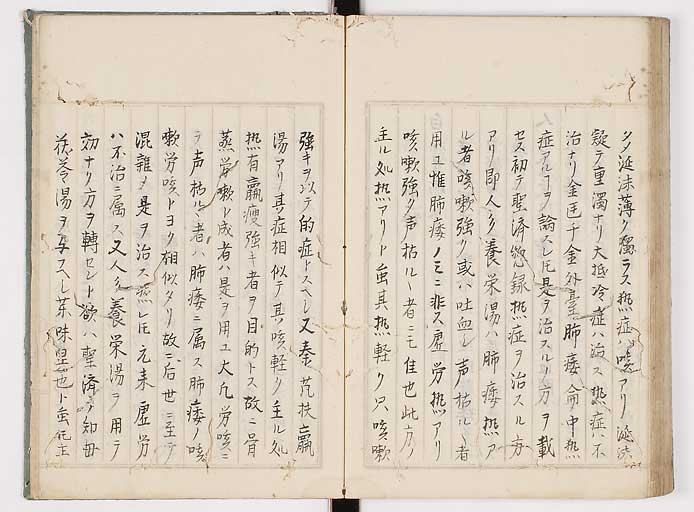 シメ涎沫薄ク濁ラス熱症ハ咳アリ涎沫
凝テ重濁ナリ大抵冷症ハ治ス熱症ハ不
治ナリ金匱千金外臺肺痿侖中熱
症アルヿヲ論スレ𪜈是ヲ治スルノ方ヲ載
セス初テ聖済総録熱症ヲ治スル方
アリ即人参養栄湯ハ肺痿熱ア
ル者咳嗽強ク或ハ吐血シ声枯ルヽ者
用ユ惟肺痿ノミニ非ス虚労熱アリ
咳嗽強ク声枯ルヽ者ニモ佳也此方ノ
主ル処熱アリト虽其熱軽ク只咳嗽
強キヲ以テ的症トスヘシ又秦艽扶羸
湯アリ其症相似テ其咳軽ク主ル処
熱有羸痩強キ者ヲ目的トス故ニ骨
蒸労嗽ト成者ハ是ヲ用ユ大凡労咳ニ
テ声枯ルヽ者ハ肺痿ニ属ス肺痿ノ咳
嗽労咳トヨク相似タリ故ニ后世ニ至テ
混雑メ是ヲ治ス然レ𪜈元来虚労
ハ不治ニ属ス又人参養栄湯ヲ用テ
効ナリ方ヲ轉セント欲ハ聖済ノ知母
茯苓湯ヲ与フヘシ薬味異也ト虽𪜈主